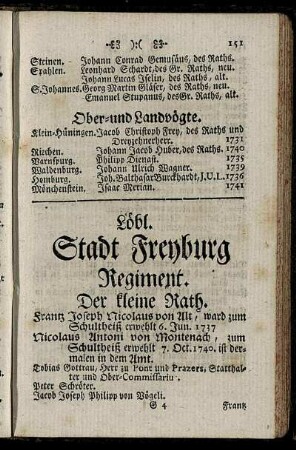 -ξ3 ):( ξ3- 151
Steinen. Johann Conrad Gemusäus, des Raths.
Spahlen. Leonhard Schardt, des Gr. Raths, neu.
Johann Lucas Iselin, des Raths, alt.
S. Johannes. Georg Martin Gläser, des Raths, neu.
Emanuel Stupanus, des Gr. Raths, alt.
Ober- und Landvögte.
Klein-Hüningen. Jacob Christoph Frey, des Raths und
Dreyzehnerherr. 1731
Riechen. Johann Jacob Huber, des Raths. 1740
Warnspurg. Philipp Dienast. 1735
Waldenburg. Johann Ulrich Wagner. 1739
Homburg. Joh. Balthasar Burckhardt, J.U.L. 1736
Mönchenstein. Isaac Merian. 1741
Löbl.
Stadt Freyburg
Regiment.
Der kleine Rath.
Frantz Joseph Nicolaus von Alt, ward zum
Schultheiß erwehlt 6. Jun. 1737
Nicolaus Antoni von Montenach, zum
Schultheiß erwehlt 7. Oct. 1740. ist der-
malen in dem Amt.
Tobias Gottrau, Herr zu Pont und Prazers, Statthal-
ter und Ober-Commissarius.
Peter Schröter.
Jacob Joseph Philipp von Vögeli.
G 4 Frantz